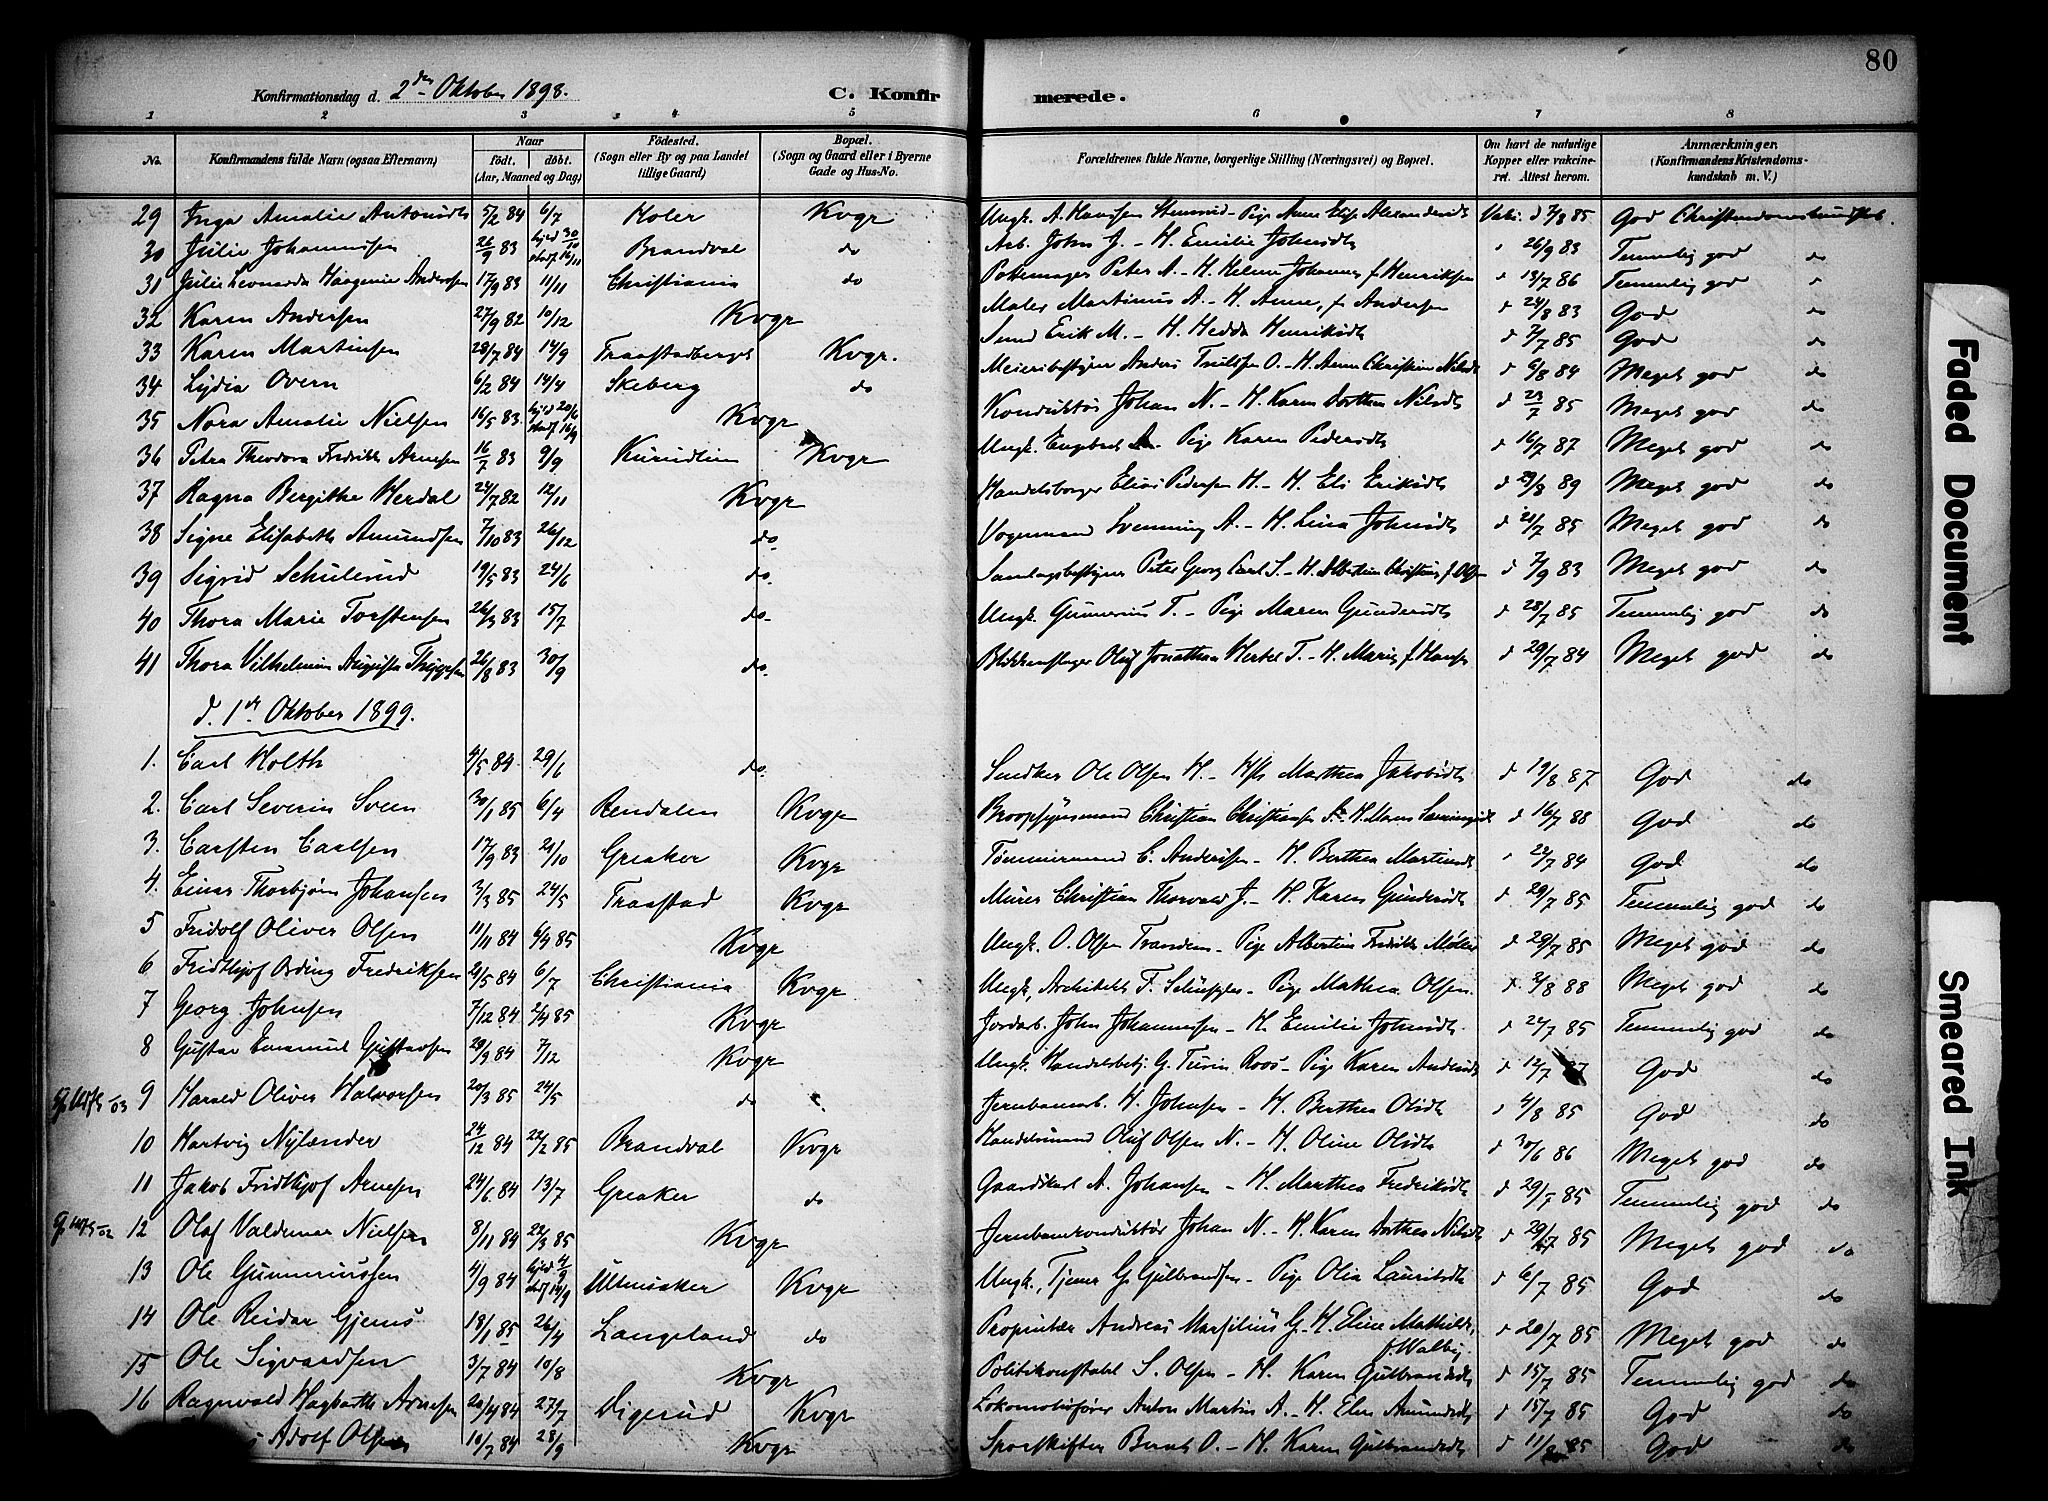 80
Konfirmationsdag d. 2den Oktober 1898. C. Konfirmerede.
1 2 3 4 5 6 7 8
No. Konfirmandens fulde Navn (ogsaa Efternavn) Naar født, døbt. (Aar, Maaned og Dag) Fødested. (Sogn eller By og paa Landet tillige Gaard) Bopæl. (Sogn og Gaard eller i Byerne Gade og Hus-No. Forældrenes fulde Navne, borgerlige Stilling (Næringsvei) og Bopæl. Om havt de naturlige Kopper eller vaccineret. Attest herom. Anmærkninger. (Konfirmandens Kristendomskundskab m. V.)
29 Inga Amalie 5/2 84 6/7 Holer Kvgr Ungk. A. Hansen - Pige Anne Elise 7/8 85 God Christendomskundskab.
30 Julie Johannessen 26/9 83 Brandval do Arb. John J. - H. Emilie Johnsdt 26/9 83 Temmelig god do
31 Julie Leonarda Andersen 17/9 83 11/11 Christiania do Peter A. - H. Helene f. Henriksen d 13/7 86 Temmelig god
32 Karen Andersen 27/9 82 10/12 Kvgr Maler Martinus A. - H. Anne, f. Andersen d 24/8 83 God do
33 Karen Martinsen 28/7 84 14/9 Traastadberget Kvgr. Smed Erik M. - H. Hedda Henriksdt d 7/7 85 God do
34 Lydia Overn 6/2 84 14/4 Skeberg do Meieribestyrer Anders Truulsen O. - H. Anne Christine Nilsdt d 6/8 84 Meget god do
35 Nora Amalie Nielsen 16/5 83 Kvgr Konduktør Johan N. - H. Karen Dorthea Nilsdt d 23/7 85 Meget god do
36 Petra Theodora Fredrikke Arnesen 16/7 83 9/9 Kvgr Ungk. Engebret A. Pige Karen Pedersdt d 16/7 87 Meget god do
37 Ragna Bergithe Herdal 24/7 82 12/11 Kvgr Handelsborger Elias Pedersen H. - H. Eli Eriksdt d 29/8 89 Meget god do
38 Signe Elisabeth Amundsen 7/10 83 26/12 do Vognmand Svenning A. - H. Lina Johnsdt d 21/7 85 Meget god do
39 Sigrid Schulerud 19/5 83 24/6 do. Samlagsbestyrer Peter Georg Carl S. - H. Albertine Christine f. Olsen d 7/9 83 Meget god do
40 Thora Marie Torstensen 26/3 83 15/7 do Ungk. Gunnerius T. - Pige Maren Gundersdt d 28/7 85 Temmelig god do
41 Thora Vilhelmine Augusta 26/8 83 30/9 do. Oluf Jonathan T. - H. Marie f. Hansen d 29/7 84 Meget god do
d. 1ste Oktober 1899.
1. Carl Holth 4/5 84 29/6 do. Ole Olsen H. - Marthea Jakobsdt d 19/8 87 God do
2. Carl Severin Sveen 30/1 85 6/4 Rendalen Kvgr Christian Christiansen d 16/7 88 God do
3. Carsten Carlsen 17/9 83 21/10 Greaker Kvgr Tømmermand C. Andersen - H. Berthea Martinsdt 22/7 84 God do
4. Einar Thorbjørn Johansen 3/3 85 24/5 Traastad Kvgr Murer Christian Thorvald J. - H. Karen Gundersdt d 29/7 85 Temmelig god do
5 Fridolf Oliver Olsen 11/11 84 6/4 85 Kvgr Ungk. O. Olsen Tranden - Pige Albertine Fredrikke Møller d 29/7 85 Meget god do
6 Fridthjof Arding Fredriksen 21/5 84 6/7 Christiania Kvgr Ungk, Architekt F. - Pige Mathea Olsen. 3/8 88 Meget god do
7 Georg Johnsen 7/12 84 2/4 85 Kvgr Jordarb. John Johannessen - H. Emilie Johnsdt. 22/7 85 Temmelig god do
8 Gustav Emanuel Gustavsen 29/9 84 7/12 Kvgr Ungk. Handelsbetj. G. Roos - Pige Karen Andersdt 12/7 God do
9 Harald Oliver Halvorsen 20/3 85 24/5 do Jernbanearb. H. Johnsen - H. Berthea Olsdt 4/8 85 God do
10 Hartvig Nylænder 24/12 84 22/2 85 Brandval Kvgr Handelsmand Oluf Olsen N. - H. Oline Olsdt 30/6 86 Meget god do
11 Jakob Fridthjof Arnesen 24/6 84 13/7 Greaker do Gaardskarl A. Johansen - H. Marthea Fredriksdt d 29/7 85 Temmelig god do
12 Olaf Valdemar Nielsen 8/11 84 22/3 85 Kvgr Jernbanekonduktør Johan N. - H. Karen Dorthea Nilsdt d 29/7 85 Meget god do
13 Ole Gunneriussen 4/9 84 Ullensaker Kvgr Ungk., Tjener G. Gulbrandsen - Pige Olia Lauritsdt d 6/7 85 God do
14 Ole Reidar Gjems 18/1 85 26/4 Langeland do Proprietær Andreas Marsilius G. - H. Eline Mathilde, f. Walby. 20/7 85 Meget god do
15 Ole Sigvardsen 3/7 84 10/8 Kvgr Politikonstabel S. Olsen - H. Karen Gulbrandsdt d 15/7 85 Temmelig god do
16 Ragnvald Hagbarth Arnesen 20/4 84 27/7 Digerud Kvgr Lokomotivfører Anton Martin A. - H. Elen Amundsdt d 15/7 85 God do
Adolf Olsen 10/7 84 28/9 Kvgr Sporskifter Bernt O. - H. Karen Gulbrandsdt d 11/8 85 God do
Faded Document
Smeared Ink